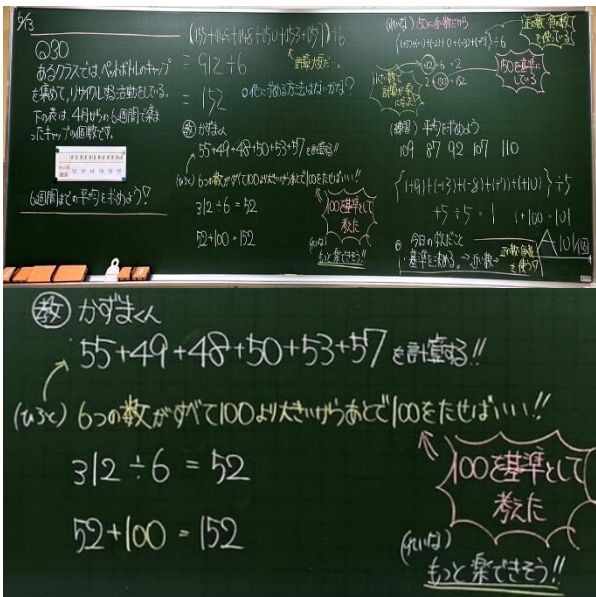 5/13
Q30
あるクラスでは、ペットボトルのキャップ
を集めて、リサイクルする活動をしている。
下の表は、4月からの6週間で集ま
ったキャップの個数です。
6週間までの平均を求めよう!
(155+149+148+150+153+157)÷6
= 912÷6
= 152
計算大変だ…
他に求める方法はないかな?
教 かずまくん
55+49+48+50+53+57を計算する!!
(ひろと) 6つの数がすべて100より大きいからあとで100をたせばいい!!
312÷6=52
52+100=152
100を基準として
考えた
(れいな)
もっと楽できそう!!
(れいな) 150に
正の数・負の数
を使っている
÷6
12÷6=2
2+150=152
150を基準に
している
(練習) 平均を求めよう
109 87 92 107 110
÷5
+5÷5=1 1+100=101
A 101個
今日の学んだこと
・基準を決める。
教 かずまくん
55+49+48+50+53+57を計算する!!
(ひろと) 6つの数がすべて100より大きいからあとで100をたせばいい!!
312÷6=52
52+100=152
100を基準として
考えた
(れいな)
もっと楽できそう!!